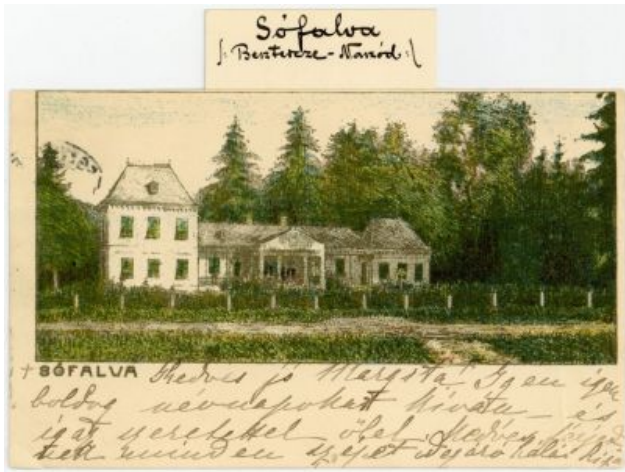 Sófalva
/: Besztercze-Naszód :/
SÓFALVA Kedves jó Margita! Igen igen
boldog névnapokat kíván – és
igaz szeretettel ölel. Kedves
nek minden szépet